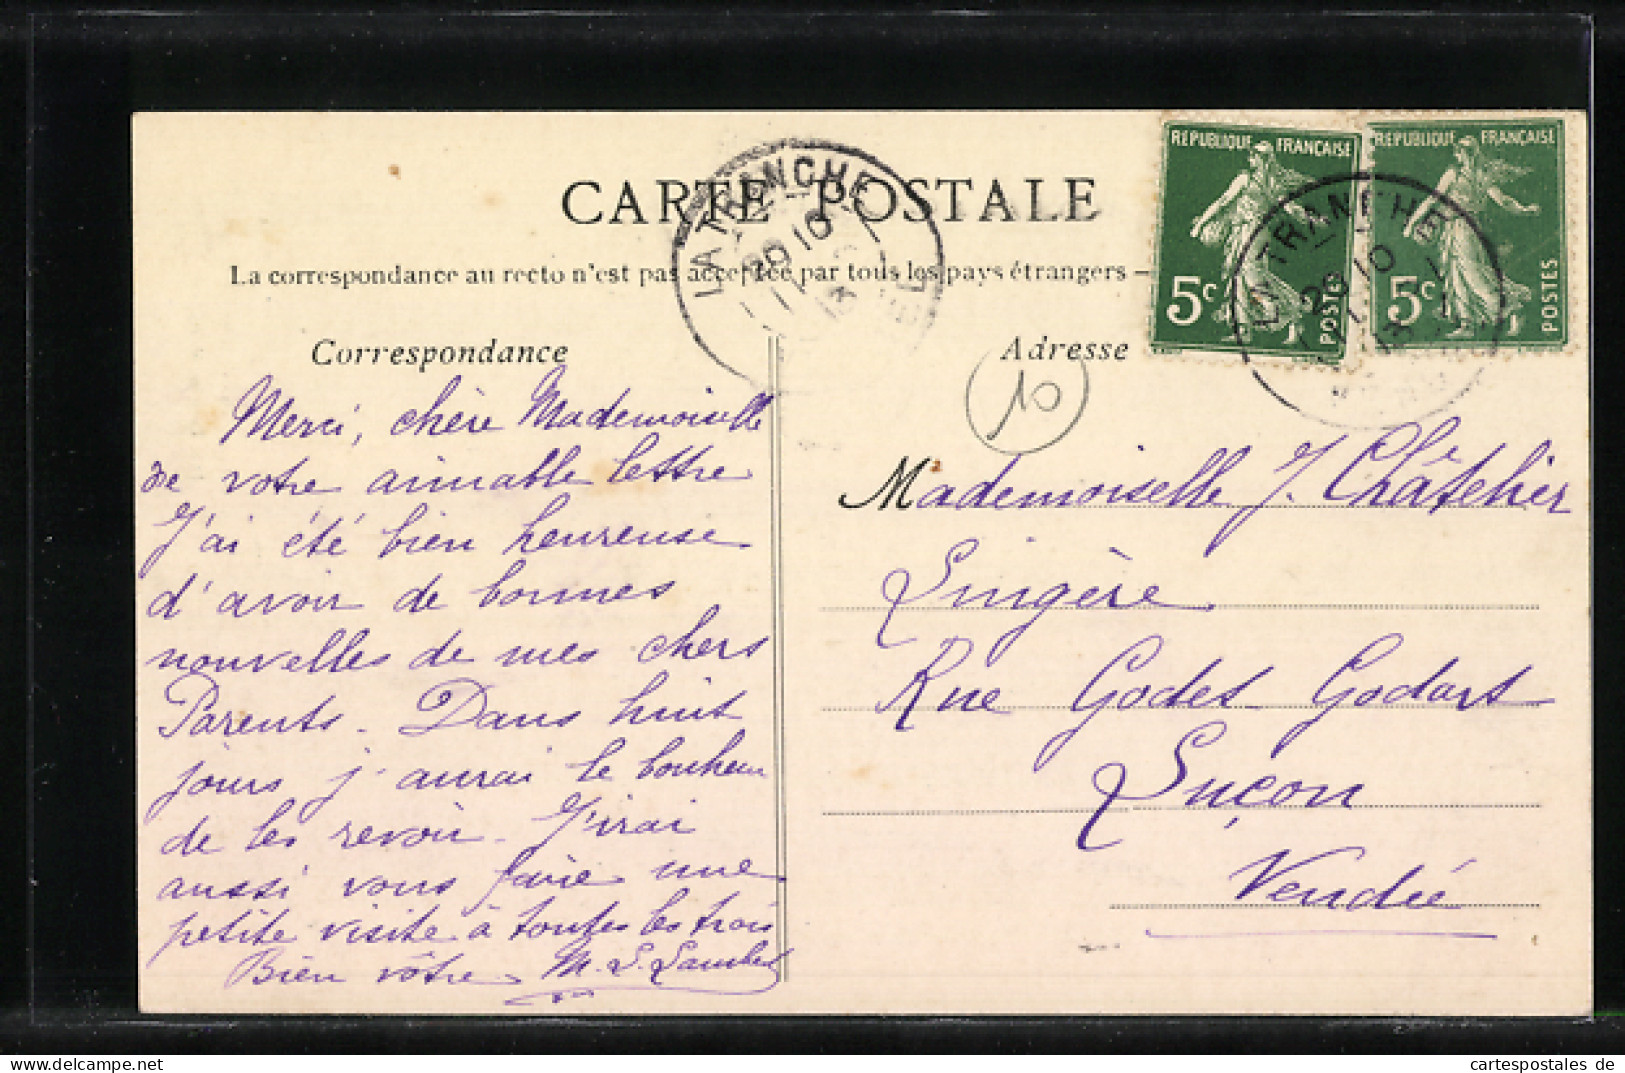 CARTE POSTALE
La correspondance au recto n'est pas acceptée par tous les pays étrangers –
Correspondance
Merci, chère Mademoiselle
de votre aimable lettre
J'ai été bien heureuse
d'avoir de bonnes
nouvelles de mes chers
Parents. Dans huit
jours j'aurai le bonheur
de les revoir. J'irai
aussi vous faire une
petite visite à toutes les trois
Bien vôtre M. L.
Adresse
10
Mademoiselle J. Châtelier
Lingère
Rue Godet Godart
Luçon
Vendée
REPUBLIQUE FRANÇAISE
5c
POSTES
REPUBLIQUE FRANÇAISE
5c
POSTES
LA TRANCHE
20 10
13
LA TRANCHE
20 10
13
cartespostales de